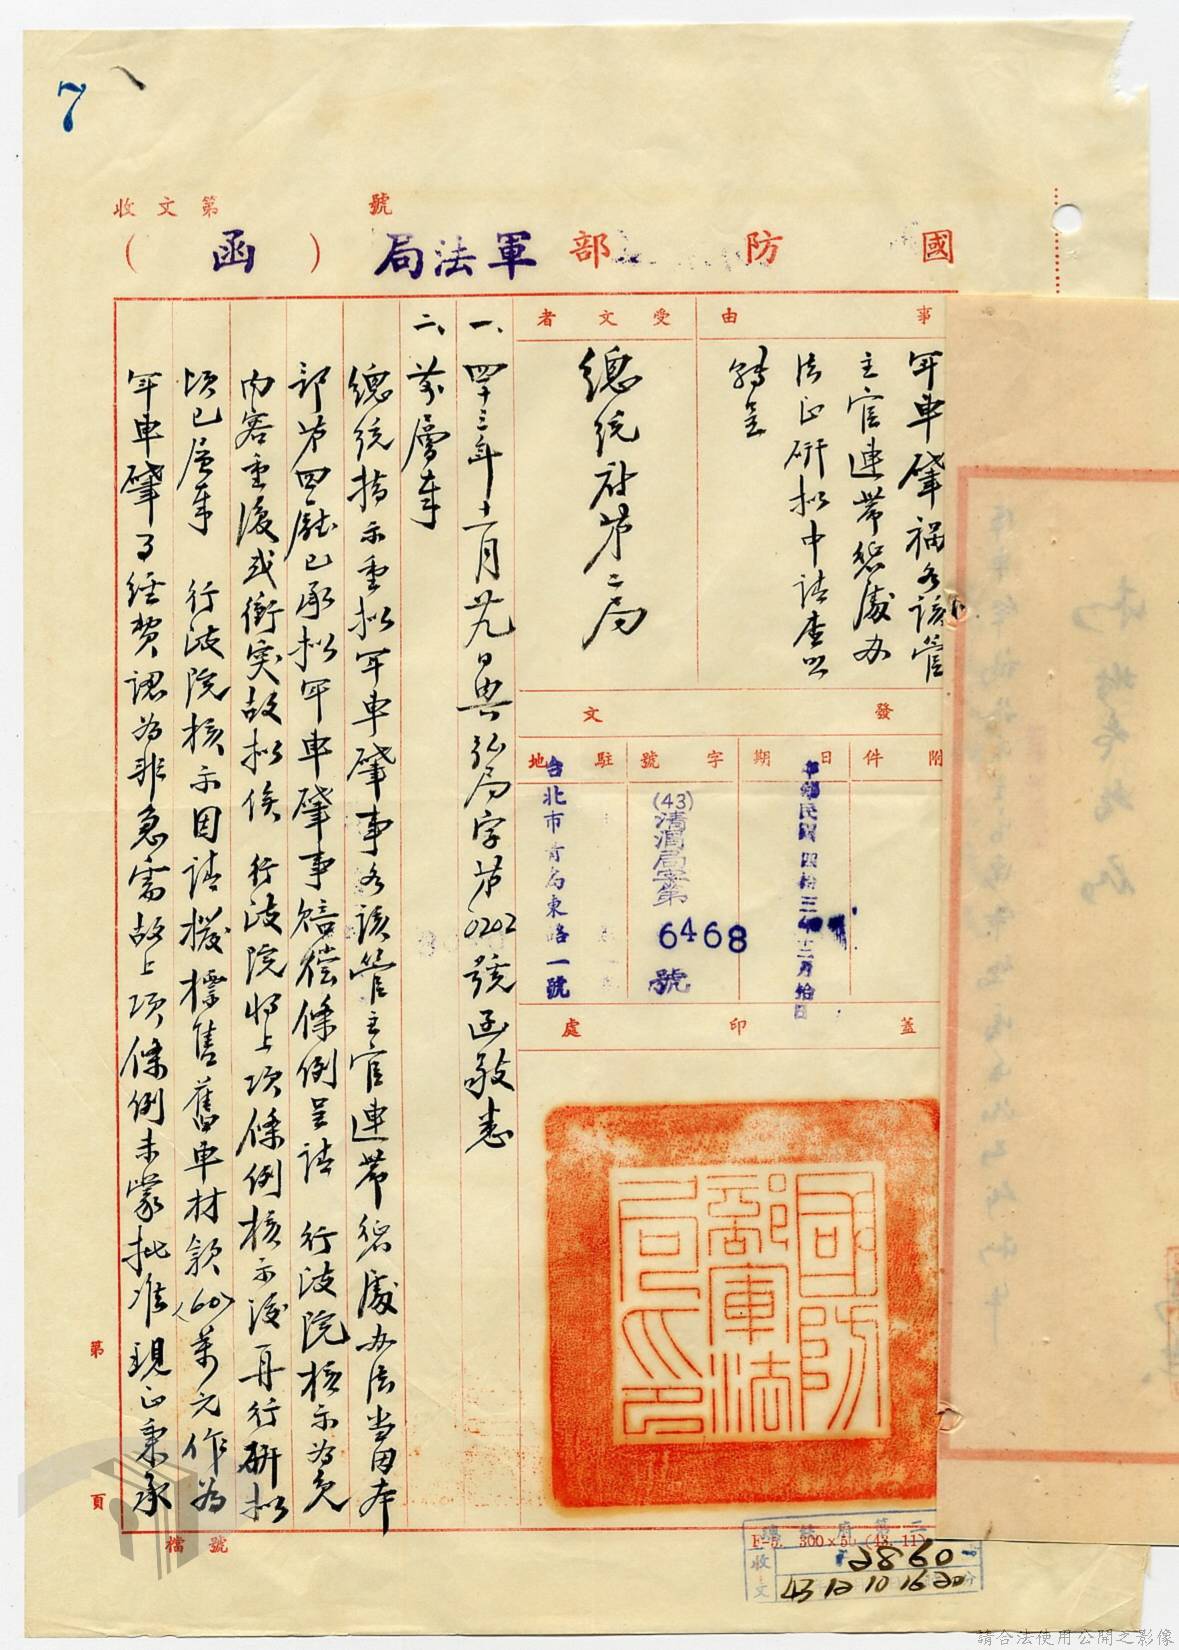 7
收文第　　號
國防部軍法局（函）
事由
軍車肇禍各該管
主官連帶懲處办
法正研拟中請查照
轉呈
受文者
總統府第二局
發文
附件
日期
中華民國四拾三年十二月拾日
字號
(43)清澗局字第
6468
號
駐地
台北市青島東路一號
蓋印處
國防部軍法局印
一、四十三年十一月廿九日典弘局字第0202號函敬悉
二、前層奉
總統指示重拟軍車肇事各該管主官連帶懲處办法當因本
部第四廳已承拟軍車肇事賠償條例呈請　行政院核示為免
內容重復或衝突故拟俟　行政院將上項條例核示後再行研拟
頃已层奉　行政院核示因請撥標售舊車材款(60)萬元作為
軍車肇事經費認為非急需故上項條例未蒙批准現正秉承
第　頁
檔號
F-5. 300×50 (43. 11)
總統府第二
收文
2860
43 12 10 16 20
請合法使用公開之影像